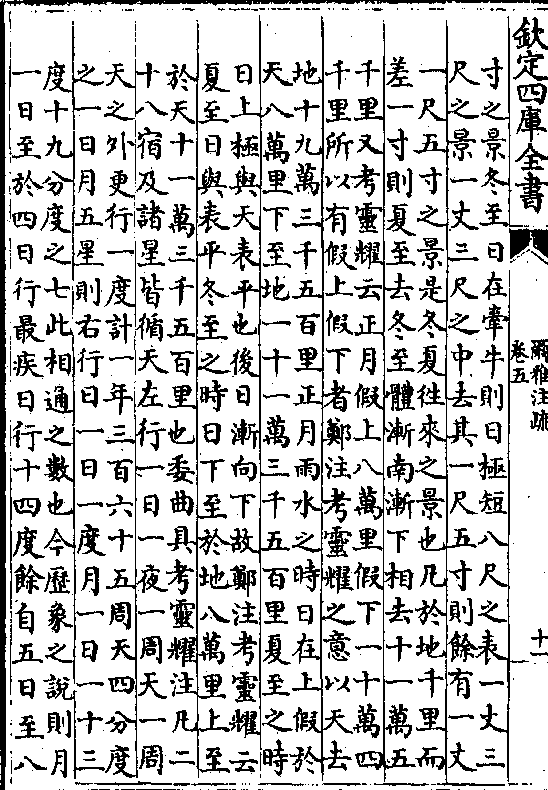 欽定四庫全書
爾雅注疏
卷五
十一
寸之景冬至日在牽牛則日極短八尺之表一丈三
尺之景一丈三尺之中去其一尺五寸則餘有一丈
一尺五寸之景是冬夏徃來之景也凡於地千里而
差一寸則夏至去冬至體漸南漸下相去十一萬五
千里又考靈耀云正月假上八萬里假下一十萬四
千里所以有假上假下者鄭注考靈耀之意以天去
地十九萬三千五百里正月雨水之時日在上假於
天八萬里下至地一十一萬三千五百里夏至之時
日上極與天表平也後日漸向下故鄭注考靈耀云
夏至日與表平冬至之時日下至於地八萬里上至
於天十一萬三千五百里也委曲具考靈耀注凡二
十八宿及諸星皆循天左行一日一夜一周天一周
天之外更行一度計一年三百六十五周天四分度
之一日月五星則右行日一日一度月一日一十三
度十九分度之七此相通之數也今歷象之說則月
一日至於四日行最疾日行十四度餘自五日至八